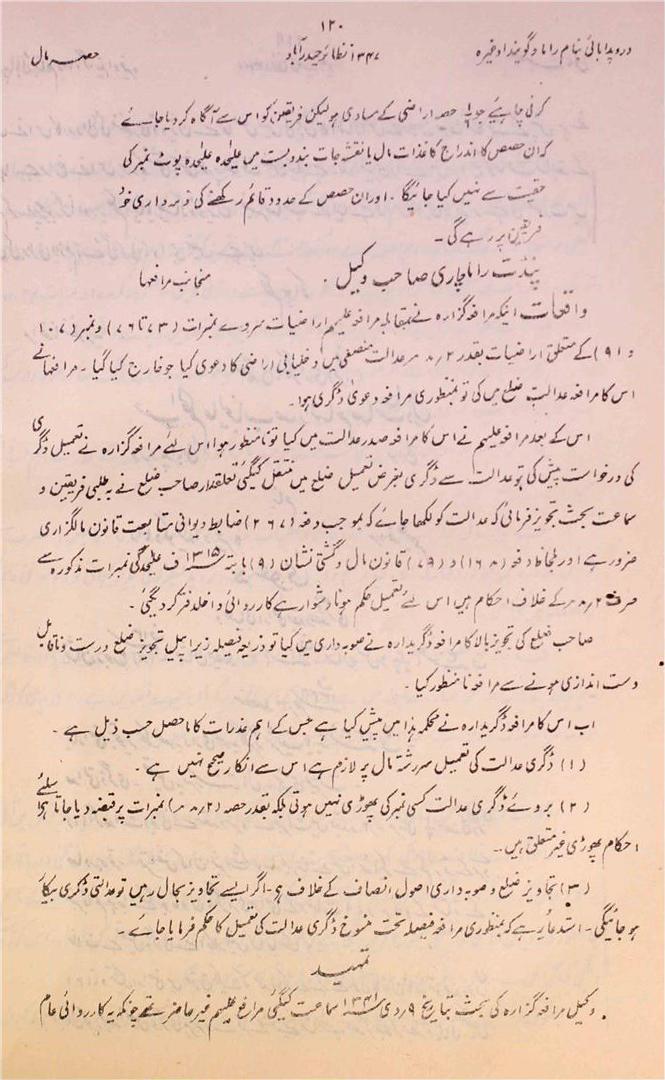 ۱۲۰
دروپدا بائی بنام راما و گویندا وغیرہ ۱۳۴۷ نظائر حیدرآباد حصہ مال
کرنی چاہئے جو حصہ اراضی کے مساوی ہو لیکن فریقین کو اس سے آگاہ کر دیا جائے
کہ ان حصص کا اندراج کاغذات مال یا نقشہ جات بندوبست میں علیحدہ علیحدہ پوٹ نمبر کی
حیثیت سے نہیں کیا جائیگا۔ اور ان حصص کے حدود قائم رکھنے کی ذمہ داری خود
فریقین پر رہے گی۔
پنڈت راماچاری صاحب وکیل۔ منجانب مرافعہا
واقعات اینکہ مرافعہ گزارہ نے بمقابلہ مرافعہ علیہم اراضیات سروے نمبرات (۷۳ تا ۷۶) و نمبر (۱۰۷
و ۹۱) کے متعلق اراضیات بقدر ۲؍۸ مر عدالت منصفی میں دخلیابی اراضی کا دعویٰ کیا جو خارج کیا گیا۔ مرافعہا نے
اس کا مرافعہ عدالت ضلع میں کی تو بمنظوری مرافعہ دعویٰ ڈگری ہوا۔
اس کے بعد مرافعہ علیہم نے اس کا مرافعہ صدر عدالت میں کیا تو نامنظور ہوا اس لئے مرافعہ گزارہ نے تعمیل ڈگری
کی درخواست پیش کی تو عدالت سے ڈگری بغرض تعمیل ضلع میں منتقل کیگئی تعلقدار صاحب ضلع نے بہ طلبی فریقین و
سماعت بحث تجویز فرمائی کہ عدالت کو لکھا جائے کہ بموجب دفعہ (۲۶۷) ضابطہ دیوانی متابعت قانون مالگزاری
ضرور ہے اور بلحاظ دفعہ (۱۶۸) و (۷۹) قانون مال و گشتی نشان (۹) بابتہ ۱۳۱۵ف علیحدگی نمبرات مذکورہ سے
صرف ۲؍۸ مر کے خلاف احکام ہیں اس لئے تعمیل حکم ہونا دشوار ہے کارروائی داخلدفتر کردیگئی۔
صاحب ضلع کی تجویز بالا کا مرافعہ ڈگریدارہ نے صوبہ داری میں کیا تو ذریعہ فیصلہ زیر اپیل تجویز ضلع درست و ناقابل
دست اندازی ہونے سے مرافعہ نامنظور کیا۔
اب اس کا مرافعہ ڈگریدارہ نے محکمہ ہذا میں پیش کیا ہے جس کے اہم عذرات کا ماحصل حسب ذیل ہے۔
(۱) ڈگری عدالت کی تعمیل سررشتہ مال پر لازم ہے اس سے انکار صحیح نہیں ہے۔
(۲) بروئے ڈگری عدالت کسی نمبر کی پھوڑی نہیں ہوتی بلکہ بقدر حصہ (۲؍۸ مر) نمبرات پر قبضہ دیا جاتا ہے اسلئے
احکام پھوڑی غیر متعلق ہیں۔
(۳) تجاویز ضلع و صوبہ داری اصول انصاف کے خلاف ہے۔ اگر ایسے تجاویز بحال رہیں تو عدالتی ڈگری بیکار
ہو جائیگی۔ استدعا یہ ہے کہ بمنظوری مرافعہ فیصلہ تحت منسوخ ڈگری عدالت کی تعمیل کا حکم فرمایا جائے۔
تمہید
وکیل مرافعہ گزارہ کی بحث بتاریخ ۹؍ دی ۱۳۴۱ف سماعت کیگئی مرافعہ علیہم غیر حاضر تھے چونکہ یہ کارروائی عام